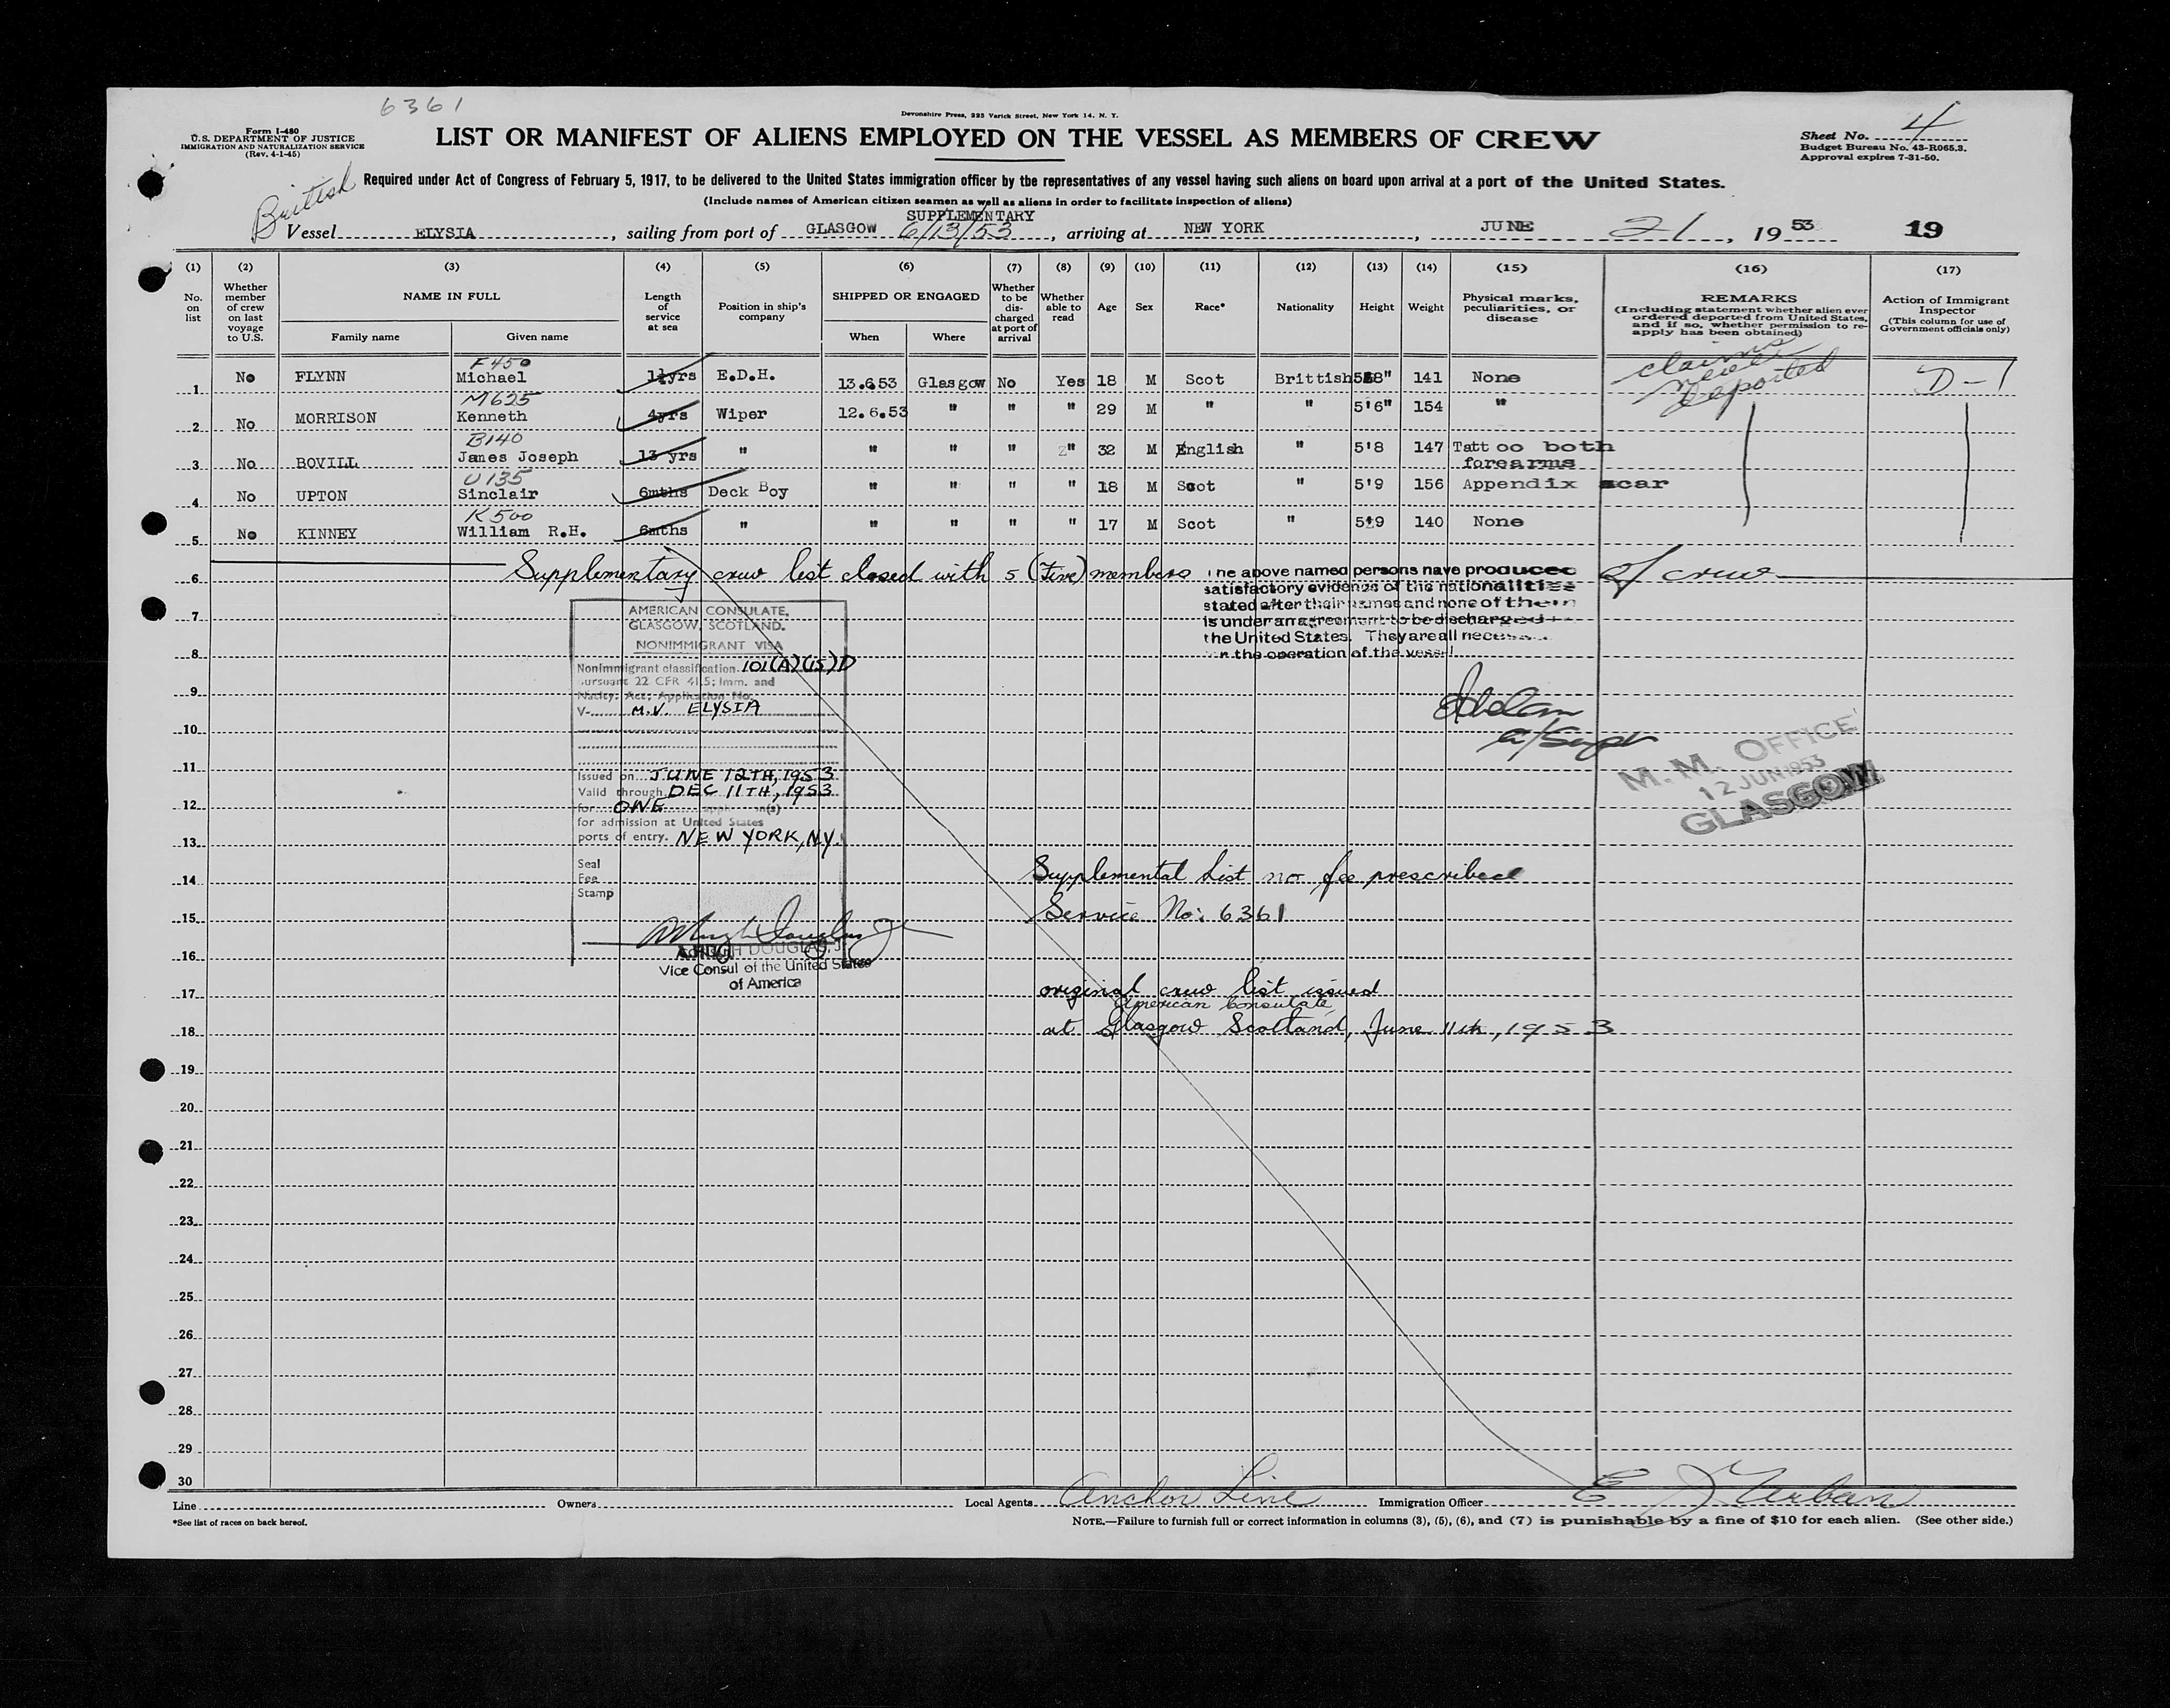 6361
Form I-480
U.S. DEPARTMENT OF JUSTICE
IMMIGRATION AND NATURALIZATION SERVICE
(Rev. 4-1-45)
Devonshire Press, 225 Varick Street, New York 14, N. Y.
LIST OR MANIFEST OF ALIENS EMPLOYED ON THE VESSEL AS MEMBERS OF CREW
Sheet No. 4
Budget Bureau No. 43-R065.3.
Approval expires 7-31-50.
British
Required under Act of Congress of February 5, 1917, to be delivered to the United States immigration officer by the representatives of any vessel having such aliens on board upon arrival at a port of the United States.
(Include names of American citizen seamen as well as aliens in order to facilitate inspection of aliens)
SUPPLEMENTARY
Vessel ELYSIA, sailing from port of GLASGOW 6/13/53, arriving at NEW YORK, JUNE 21, 19 53 19
(1) (2) (3) (4) (5) (6) (7) (8) (9) (10) (11) (12) (13) (14) (15) (16) (17)
No. on list
Whether member of crew on last voyage to U.S.
NAME IN FULL
Family name Given name
Length of service at sea
Position in ship's company
SHIPPED OR ENGAGED
When Where
Whether to be discharged at port of arrival
Whether able to read
Age
Sex
Race*
Nationality
Height
Weight
Physical marks, peculiarities, or disease
REMARKS
(Including statement whether alien ever ordered deported from United States, and if so, whether permission to reapply has been obtained)
Action of Immigrant Inspector
(This column for use of Government officials only)
F450
1 No FLYNN Michael yrs E.D.H. 13.6.53 Glasgow No Yes 18 M Scot Brittish 5'8" 141 None claims never deported D-1
M625
2 No MORRISON Kenneth 4yrs Wiper 12.6.53 " " " 29 M " " 5'6" 154 "
B140
3 No BOVILL James Joseph 13 yrs " " " " " 32 M English " 5'8 147 Tattoo both forearms
U135
4 No UPTON Sinclair 6mths Deck Boy " " " " 18 M Scot " 5'9 156 Appendix scar
K500
5 No KINNEY William R.H. 6mths " " " " " 17 M Scot " 5'9 140 None
6 Supplementary crew list closed with 5 (Five) members of crew
The above named persons have produced
satisfactory evidence of the nationalities
stated after their names and none of them
is under an agreement to be discharged in
the United States. They are all necessary
in the operation of the vessel
AMERICAN CONSULATE,
GLASGOW, SCOTLAND.
NONIMMIGRANT VISA
Nonimmigrant classification 101(A)(15)D
pursuant 22 CFR 41.5; Imm. and
Natlty. Act; Application No.
V- M.V. ELYSIA
Issued on JUNE 12TH, 1953
Valid through DEC 11TH, 1953
for ONE application(s)
for admission at United States
ports of entry. NEW YORK, N.Y.
Seal
Fee
Stamp
HUGH DOUGLAS, Jr
Vice Consul of the United States
of America
M. M. OFFICE
12 JUN 1953
GLASGOW
Supplemental List no fee prescribed
Service No: 6361
original crew list issued
American Consulate
at Glasgow Scotland, June 11th, 1953
7
8
9
10
11
12
13
14
15
16
17
18
19
20
21
22
23
24
25
26
27
28
29
30
Line Owners Local Agents Anchor Line Immigration Officer E J Urban
*See list of races on back hereof.
NOTE.—Failure to furnish full or correct information in columns (3), (5), (6), and (7) is punishable by a fine of $10 for each alien. (See other side.)